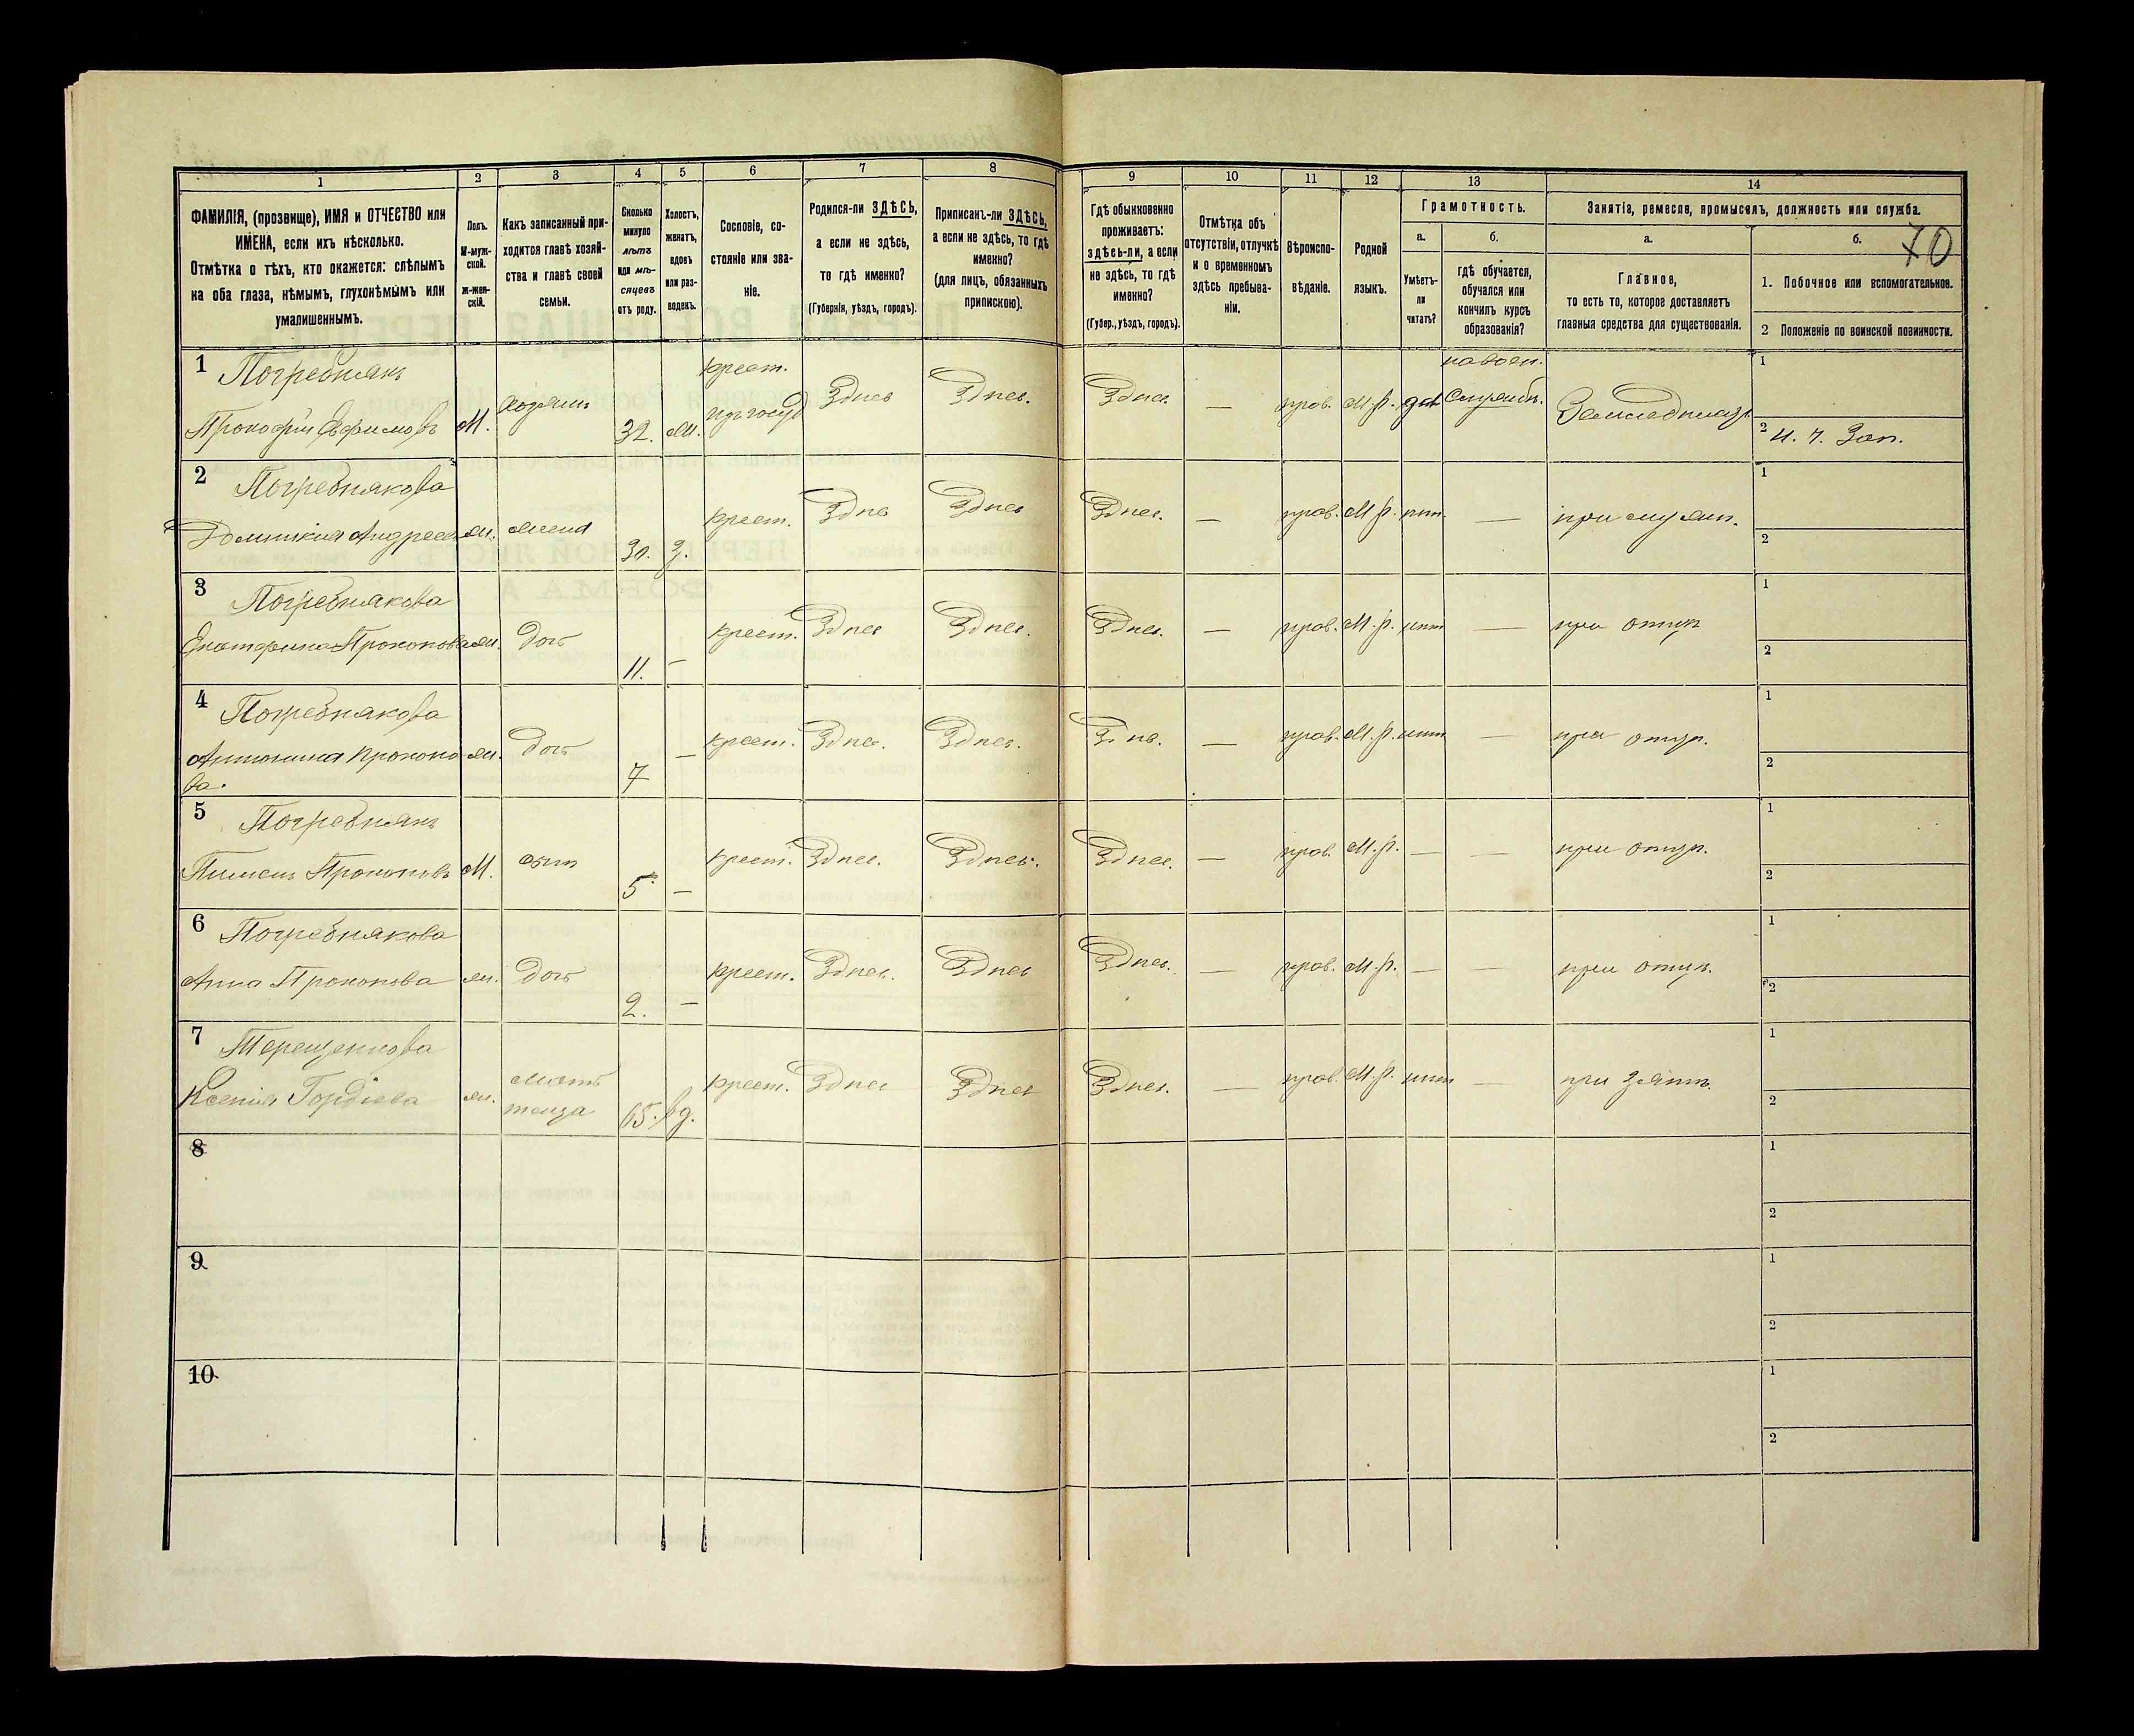 70
1 2 3 4 5 6 7 8 9 10 11 12 13 14
ФАМИЛІЯ, (прозвище), ИМЯ и ОТЧЕСТВО или
ИМЕНА, если ихъ нѣсколько.
Отмѣтка о тѣхъ, кто окажется: слѣпымъ
на оба глаза, нѣмымъ, глухонѣмымъ или
умалишеннымъ.
Полъ.
М-муж-
ской.
Ж-жен-
скій.
Какъ записанный при-
ходится главѣ хозяй-
ства и главѣ своей
семьи.
Сколько
минуло
лѣтъ
или мѣ-
сяцевъ
отъ роду.
Холостъ,
женатъ,
вдовъ
или раз-
веденъ.
Сословіе, со-
стояніе или зва-
ніе.
Родился-ли ЗДѢСЬ,
а если не здѣсь,
то гдѣ именно?
(Губернія, уѣздъ, городъ).
Приписанъ-ли ЗДѢСЬ,
а если не здѣсь, то гдѣ
именно?
(для лицъ, обязанныхъ
припискою).
Гдѣ обыкновенно
проживаетъ:
здѣсь-ли, а если
не здѣсь, то гдѣ
именно?
(Губер., уѣздъ, городъ).
Отмѣтка объ
отсутствіи, отлучкѣ
и о временномъ
здѣсь пребыва-
ніи.
Вѣроиспо-
вѣданіе.
Родной
языкъ.
Грамотность.
а.
Умѣетъ-
ли
читать?
б.
гдѣ обучается,
обучался или
кончилъ курсъ
образованія?
Занятія, ремесло, промыселъ, должность или служба.
а.
Главное,
то есть то, которое доставляетъ
главныя средства для существованія.
б.
1. Побочное или вспомогательное.
2 Положеніе по воинской повинности.
1 Погребнякъ крест. на воен. 1
Прокофій Ефимовъ М. хозяинъ 32. ж. изъ госуд Здѣсь Здѣсь. Здѣсь. — прав. М.р. да службѣ. Земледѣлецъ 2 н. ч. Зап.
2 Погребнякова 1
Домникия Андреев ж. жена 30. З. крест. Здѣсь Здѣсь Здѣсь. — прав. М.р. нѣт. — при мужѣ. 2
3 Погребнякова 1
Екатерина Прокопова ж. дочь 11. — крест. Здѣсь Здѣсь. Здѣсь. — прав. М.р. нѣт — при отцѣ 2
4 Погребнякова 1
Антонина Прокопо- ж. дочь 7 — крест. Здѣсь. Здѣсь. Здѣсь. — прав. М.р. нѣт — при отцѣ. 2
ва.
5 Погребнякъ 1
Пимен Прокоповъ М. сынъ 5 — крест. Здѣсь. Здѣсь. Здѣсь. — прав. М.р. — — при отцѣ. 2
6 Погребнякова 1
Анна Прокопова ж. дочь 2. — крест. Здѣсь. Здѣсь Здѣсь. — прав. М.р. — — при отцѣ. 2
7 Терещенкова мать 1
Ксенія Гордіева ж. 65. вд. крест. Здѣсь Здѣсь Здѣсь. — прав. М.р. нѣт — при зятѣ. 2
8 1
2
9 1
2
10 1
2